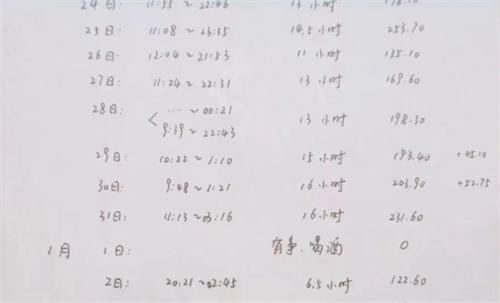 24日: 11:55~22:46 13小时
25日: 11:08~23:35 14.5小时 253.70
26日: 12:04~21:53 11小时 135.10
27日: 11:24~22:31 13小时 169.60
28日: < ...~00:21
9:39~22:43 13小时 198.30
29日: 10:22~1:10 15小时 193.40 +45.10
30日: 9:48~1:21 16小时 203.90 +52.75
31日: 11:13~03:16 16小时 231.60
1月 1日: 有事、喝酒 0
2日: 20:21~02:45 6.5小时 122.60